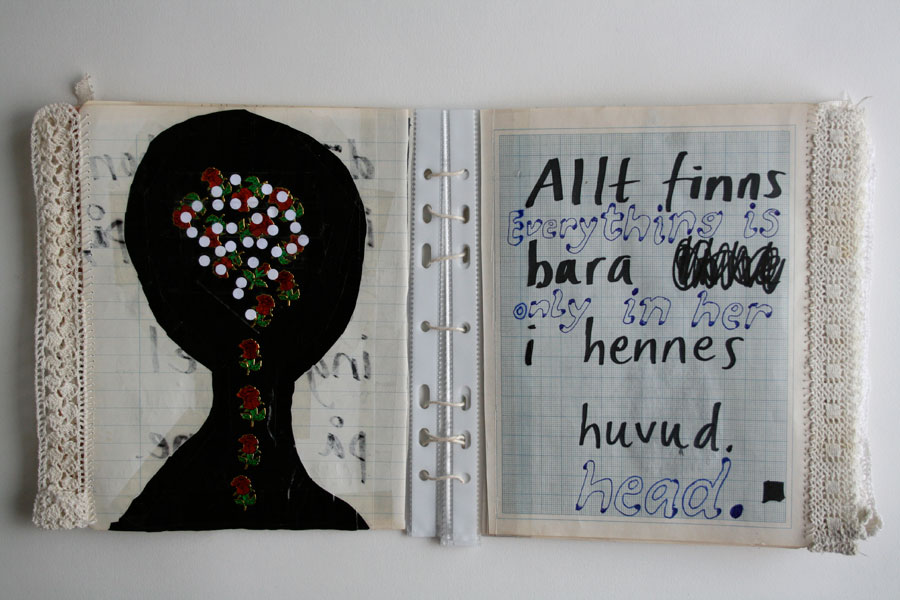 Allt finns
Everything is
bara
only in her
i hennes
huvud.
head.